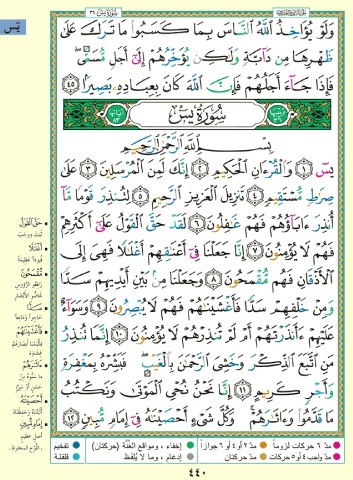 سورة يس ٣٦
يس
وَلَوْ يُؤَاخِذُ ٱللَّهُ ٱلنَّاسَ بِمَا كَسَبُوا۟ مَا تَرَكَ عَلَىٰ
ظَهْرِهَا مِن دَآبَّةٍ وَلَٰكِن يُؤَخِّرُهُمْ إِلَىٰٓ أَجَلٍ مُّسَمًّى ۖ
فَإِذَا جَآءَ أَجَلُهُمْ فَإِنَّ ٱللَّهَ كَانَ بِعِبَادِهِۦ بَصِيرًۢا ٤٥
سُورَةُ يسٓ
بِسْمِ ٱللَّهِ ٱلرَّحْمَٰنِ ٱلرَّحِيمِ
يسٓ ١ وَٱلْقُرْءَانِ ٱلْحَكِيمِ ٢ إِنَّكَ لَمِنَ ٱلْمُرْسَلِينَ ٣ عَلَىٰ
صِرَٰطٍ مُّسْتَقِيمٍ ٤ تَنزِيلَ ٱلْعَزِيزِ ٱلرَّحِيمِ ٥ لِتُنذِرَ قَوْمًا مَّآ
أُنذِرَ ءَابَآؤُهُمْ فَهُمْ غَٰفِلُونَ ٦ لَقَدْ حَقَّ ٱلْقَوْلُ عَلَىٰٓ أَكْثَرِهِمْ
فَهُمْ لَا يُؤْمِنُونَ ٧ إِنَّا جَعَلْنَا فِىٓ أَعْنَٰقِهِمْ أَغْلَٰلًا فَهِىَ إِلَى
ٱلْأَذْقَانِ فَهُم مُّقْمَحُونَ ٨ وَجَعَلْنَا مِنۢ بَيْنِ أَيْدِيهِمْ سَدًّا
وَمِنْ خَلْفِهِمْ سَدًّا فَأَغْشَيْنَٰهُمْ فَهُمْ لَا يُبْصِرُونَ ٩ وَسَوَآءٌ
عَلَيْهِمْ ءَأَنذَرْتَهُمْ أَمْ لَمْ تُنذِرْهُمْ لَا يُؤْمِنُونَ ١٠ إِنَّمَا تُنذِرُ
مَنِ ٱتَّبَعَ ٱلذِّكْرَ وَخَشِىَ ٱلرَّحْمَٰنَ بِٱلْغَيْبِ ۖ فَبَشِّرْهُ بِمَغْفِرَةٍ
وَأَجْرٍ كَرِيمٍ ١١ إِنَّا نَحْنُ نُحْىِ ٱلْمَوْتَىٰ وَنَكْتُبُ
مَا قَدَّمُوا۟ وَءَاثَٰرَهُمْ ۚ وَكُلَّ شَىْءٍ أَحْصَيْنَٰهُ فِىٓ إِمَامٍ مُّبِينٍ ١٢
حَقَّ الْقَوْلُ
ثبت ووجب
أَغْلَالًا
قيوداً عظيمة
مُقْمَحُونَ
سَدًّا
حاجزاً ومانعاً
فَأَغْشَيْنَاهُمْ
آثَارَهُمْ
أَحْصَيْنَاهُ
إِمَامٍ مُبِينٍ
أصل عظيم
مدّ ٦ حركات لزوماً
مدّ ٢ أو ٤ أو ٦ جوازاً
إخفاء ، ومواقع الغُنَّة (حركتان)
تفخيم
مدّ واجب ٤ أو ٥ حركات
مدّ حركتان
إدغام ، وما لا يُلفَظ
قلقلة
٤٤٠